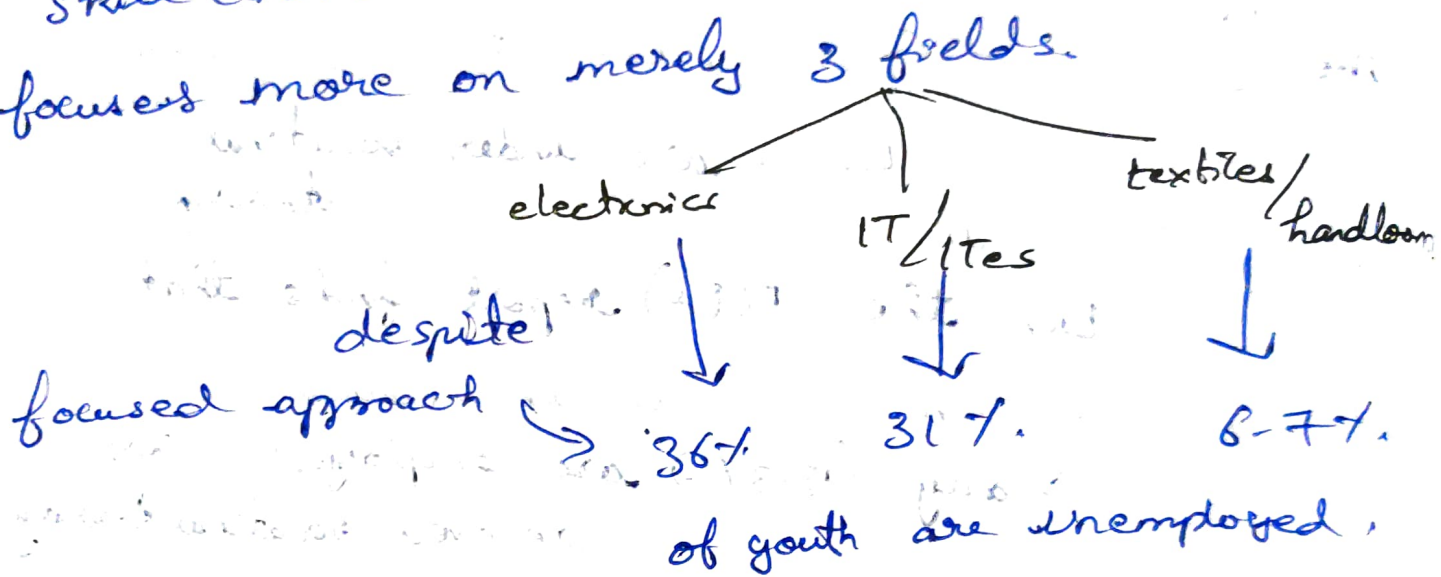 focuses more on merely 3 fields.
electronics IT/ITes textiles/handloom
despite
focused approach 36% 31%. 6-7%.
of youth are unemployed.